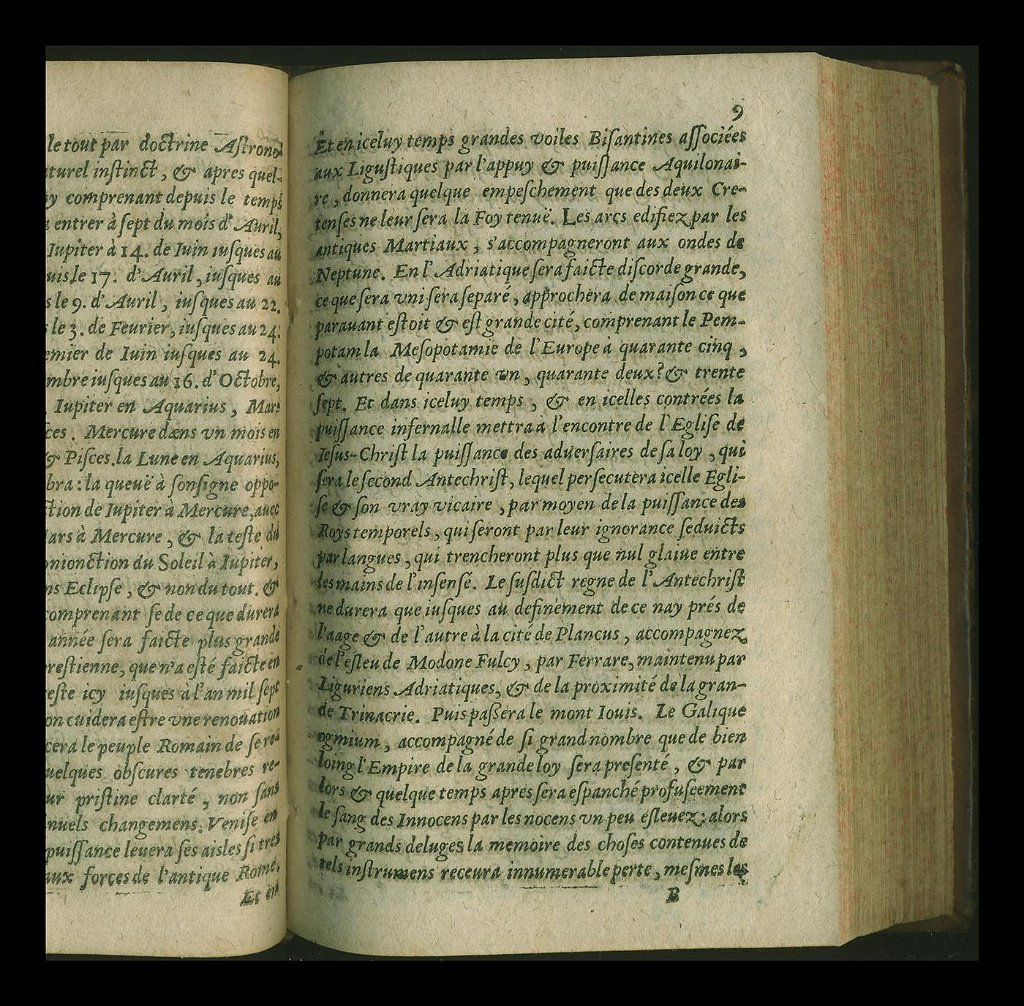 le tout par doctrine Astrono
aturel instinct, & apres quel-
y comprenant depuis le temps
entrer à sept du mois d'Auril,
Iupiter à 14. de Iuin iusques au
uis le 17. d'Auril, iusques au
s le 9. d'Auril, iusques au 22.
le 3. de Feurier, iusques au 24.
emier de Iuin iusques au 24.
mbre iusques au 16. d'Octobre,
Iupiter en Aquarius, Mars
ces. Mercure dans vn mois en
& Pisces, la Lune en Aquarius,
bra: la queuë à son signe oppo-
ction de Iupiter à Mercure, auec
ars à Mercure, & la teste du
onionction du Soleil à Iupiter,
ns Eclipse, & non du tout. &
comprenant se de ce que durera
année sera faicte plus grande
restienne, que n'a esté faicte en
este icy iusques à l'an mil sept
on cuidera estre vne renouation
cera le peuple Romain de se re-
uelques obscures tenebres re-
ur pristine clarté, non sans
nuels changemens. Venise en
puissance leuera ses aisles si tres
aux forces de l'antique Rome,
Et en
9
Et en iceluy temps grandes voiles Bisantines associées
aux Ligustiques par l'appuy & puissance Aquilonai-
re, donnera quelque empeschement que des deux Cre-
tenses ne leur sera la Foy tenuë. Les arcs edifiez par les
antiques Martiaux, s'accompagneront aux ondes de
Neptune. En l'Adriatique sera faicte discorde grande,
ce que sera vni sera separé, approchera de maison ce que
parauant estoit & est grande cité, comprenant le Pem-
potam la Mesopotamie de l'Europe à quarante cinq,
& autres de quarante vn, quarante deux? & trente
sept. Et dans iceluy temps, & en icelles contrées la
puissance infernalle mettra à l'encontre de l'Eglise de
Iesus-Christ la puissance des aduersaires de sa loy, qui
sera le second Antechrist, lequel persecutera icelle Egli-
se & son vray vicaire, par moyen de la puissance des
Roys temporels, qui seront par leur ignorance seduicts
par langues, qui trencheront plus que nul glaiue entre
les mains de l'insensé. Le susdict regne de l'Antechrist
ne durera que iusques au definement de ce nay prés de
l'aage & de l'autre à la cité de Plancus, accompagnez
de l'esleu de Modone Fulcy, par Ferrare, maintenu par
Liguriens Adriatiques, & de la proximité de la gran-
de Trinacrie. Puis passera le mont Iouis. Le Galique
ogmium, accompagné de si grand nombre que de bien
loing l'Empire de la grande loy sera presenté, & par
lors & quelque temps apres sera espanché profuseement
le sang des Innocens par les nocens vn peu esleuez: alors
par grands deluges la memoire des choses contenues de
tels instrumens receura innumerable perte, mesmes les
B